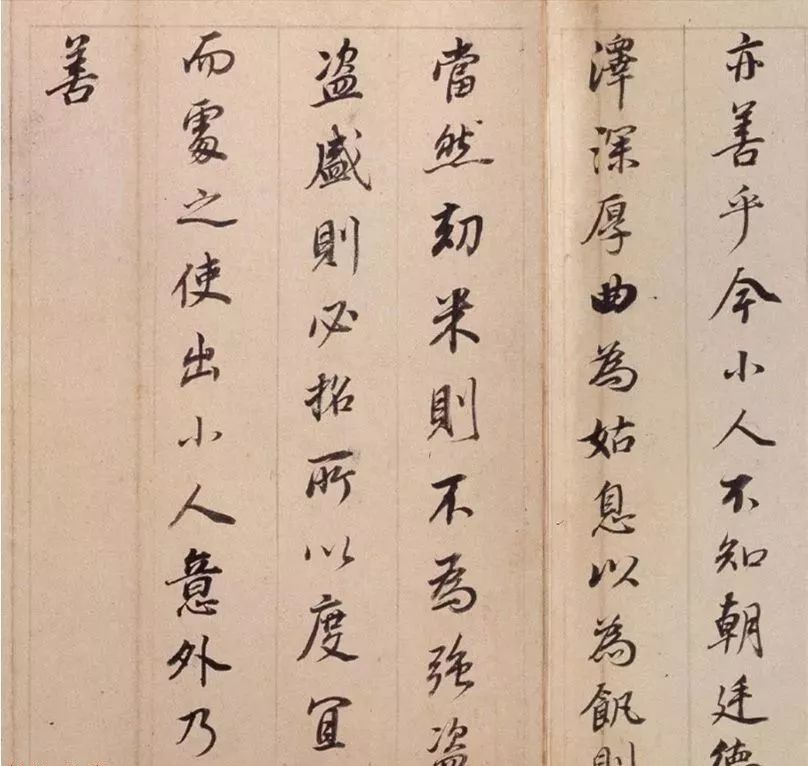 亦善乎今小人不知朝廷德
澤深厚曲為姑息以為飢則
當然刧米則不為強盜
盜盛則必招所以度宜
而處之使出小人意外乃
善